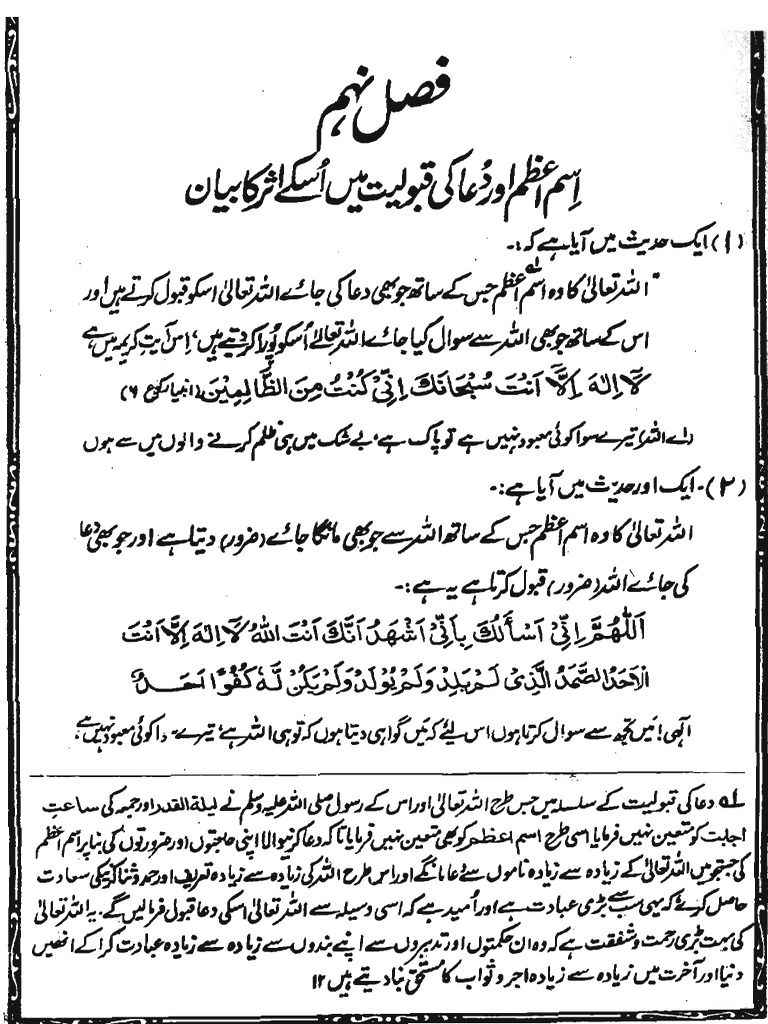 فصل نہم
اِسم اعظم اور دُعا کی قبولیت میں اُسکے اثر کا بیان
(۱) ایک حدیث میں آیا ہے کہ:۔
"اللہ تعالیٰ کا وہ اسم اعظم لہ جس کے ساتھ جو بھی دعا کی جائے اللہ تعالیٰ اسکو قبول کرتے ہیں اور
اس کے ساتھ جو بھی اللہ سے سوال کیا جائے اللہ تعالےٰ اُسکو پُورا کردیتے ہیں، اِس آیتِ کریمہ میں ہے
لَآ اِلٰهَ اِلَّآ اَنْتَ سُبْحَانَكَ اِنِّيْ كُنْتُ مِنَ الظَّالِمِيْنَ (انبیا رکوع ۶)
(اے اللہ) تیرے سوا کوئی معبود نہیں ہے تو پاک ہے، بے شک میں ہی ظلم کرنے والوں میں سے ہوں
(۲)۔ ایک اور حدیث میں آیا ہے:۔
اللہ تعالیٰ کا وہ اسم اعظم جس کے ساتھ اللہ سے جو بھی مانگا جائے (ضرور) دیتا ہے اور جو بھی دعا
کی جائے اللہ (ضرور) قبول کرتا ہے یہ ہے:۔
اَللّٰهُمَّ اِنِّيْ اَسْأَلُكَ بِاَنِّيْ اَشْهَدُ اَنَّكَ اَنْتَ اللّٰهُ لَآ اِلٰهَ اِلَّآ اَنْتَ
الْاَحَدُ الصَّمَدُ الَّذِيْ لَمْ يَلِدْ وَلَمْ يُوْلَدْ وَلَمْ يَكُنْ لَّهٗ كُفُوًا اَحَدٌ
الٰہی! مَیں تجھ سے سوال کرتا ہوں اس لیئے کہ مَیں گواہی دیتا ہوں کہ تو ہی اللہ ہے، تیرے سوا کوئی معبود نہیں ہے،
لہ دعا کی قبولیت کے سلسلہ میں جس طرح اللہ تعالیٰ اور اس کے رسول صلی اللہ علیہ وسلم نے لیلۃ القدر اور جمعہ کی ساعتِ
اجابت کو متعین نہیں فرمایا اسی طرح اسم اعظم کو بھی متعین نہیں فرمایا تاکہ دعا کرنیوالا اپنی حاجتوں اور ضرورتوں کی بنا پر اسم اعظم
کی جستجو میں اللہ تعالیٰ کے زیادہ سے زیادہ ناموں سے دُعا مانگے اور اس طرح اللہ کی زیادہ سے زیادہ تعریف اور حمد و ثنا کرنیکی سعادت
حاصل کرے کہ یہی سب سے بڑی عبادت ہے اور اُمید ہے کہ اسی وسیلہ سے اللہ تعالیٰ اسکی دعا قبول فرمالیں گے۔ یہ اللہ تعالیٰ
کی بہت بڑی رحمت و شفقت ہے کہ وہ ان حکمتوں اور تدبیروں سے اپنے بندوں سے زیادہ سے زیادہ عبادت کراکے انھیں
دنیا اور آخرت میں زیادہ سے زیادہ اجر و ثواب کا مستحق بنا دیتے ہیں ۱۲